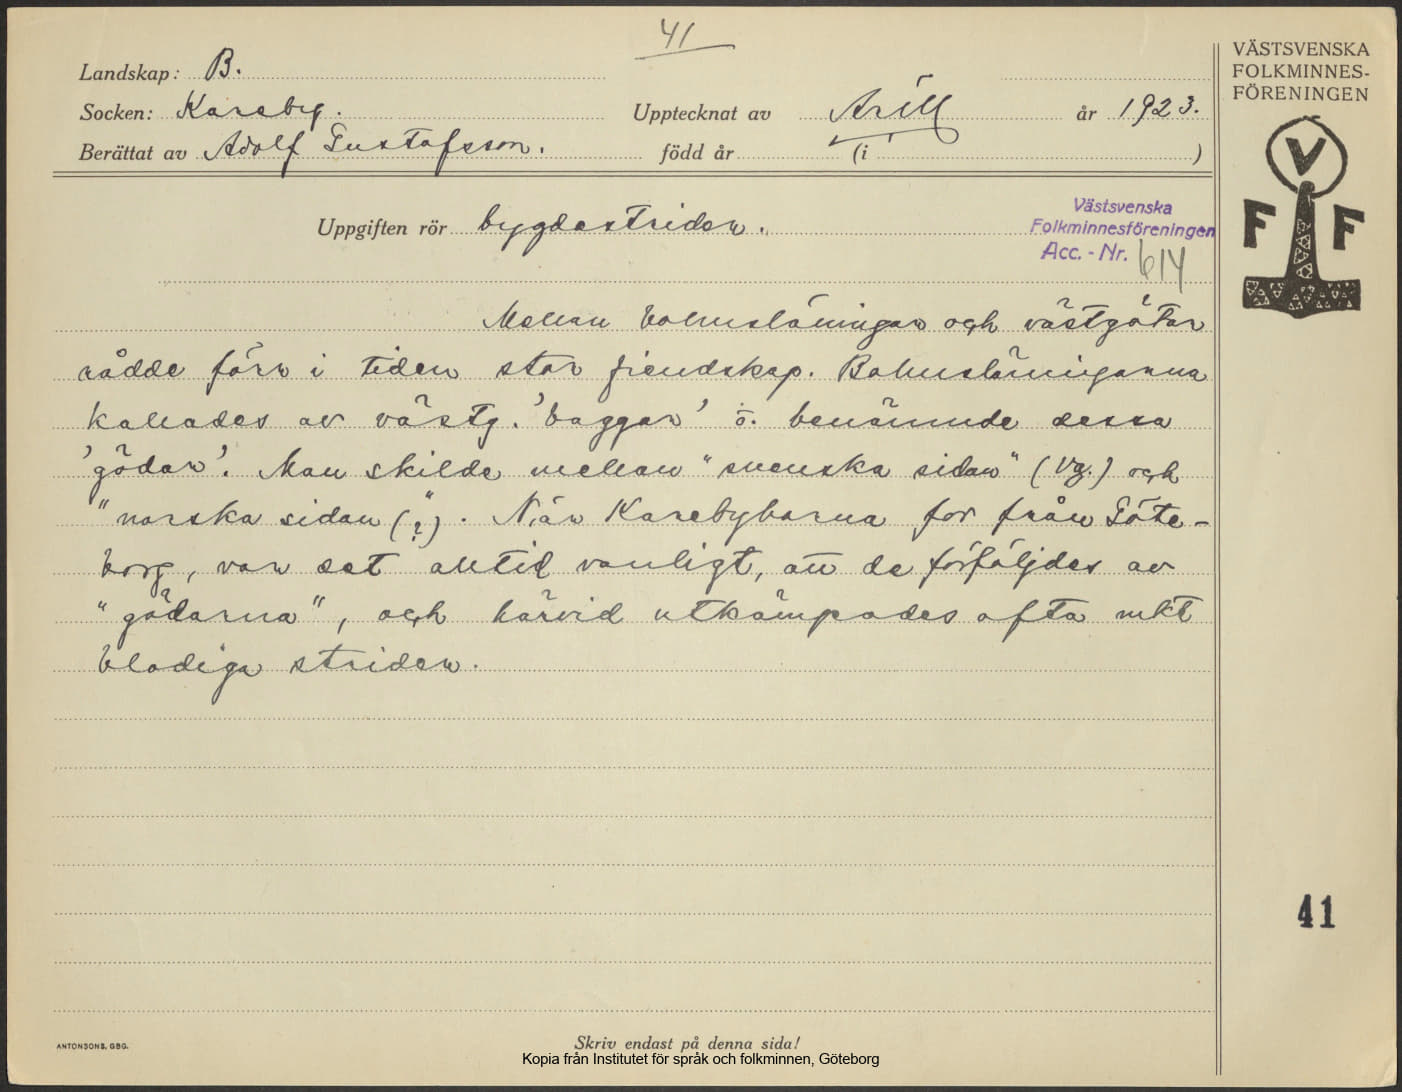 41
Landskap: B.
VÄSTSVENSKA
FOLKMINNES-
FÖRENINGEN
Socken: Kareby. Upptecknat av Arill år 1923.
Berättat av Adolf Gustafsson. född år (i )
V
F F
Uppgiften rör bygdestrider.
Västsvenska
Folkminnesföreningen
Acc. - Nr. 614
Mellan bohusläningar och västgötar
rådde förr i tiden stor fiendskap. Bohusläningarna
kallades av västg. 'baggar' o. benämnde dessa
'gödar'. Man skilde mellan "svenska sidan" (Vg.) och
"norska sidan" (?). När Karebyborna for från Göte-
borg, var det alltid vanligt, att de förföljdes av
"gödarna", och härvid utkämpades ofta mkt
blodiga strider.
41
ANTONSONS, GBG.
Skriv endast på denna sida!
Kopia från Institutet för språk och folkminnen, Göteborg